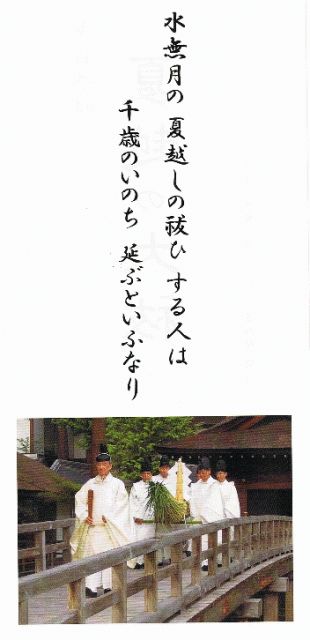 水無月の 夏越しの祓ひ する人は
千歳のいのち 延ぶといふなり